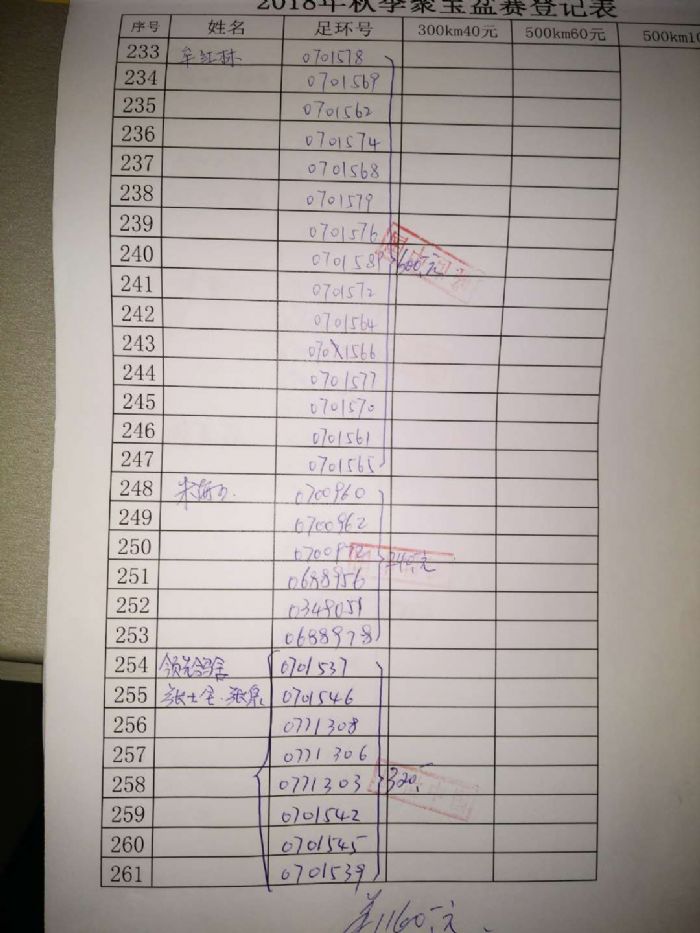 2018年秋季聚宝盆赛登记表
序号 姓名 足环号 300km40元 500km60元 500km10
233 牟红林 0701578
234 0701569
235 0701562
236 0701574
237 0701568
238 0701579
239 0701576
240 0701589 600元
241 0701572
242 0701564
243 0701566
244 0701577
245 0701570
246 0701561
247 0701565
248 0700960
249 0700962
250 0700972 240元
251 0688956
252 0349051
253 0688978
254 领先鸽舍 0701537
255 张士全·张泉 0701546
256 0771308
257 0771306
258 0771303 320
259 0701542
260 0701545
261 0701539
1160元